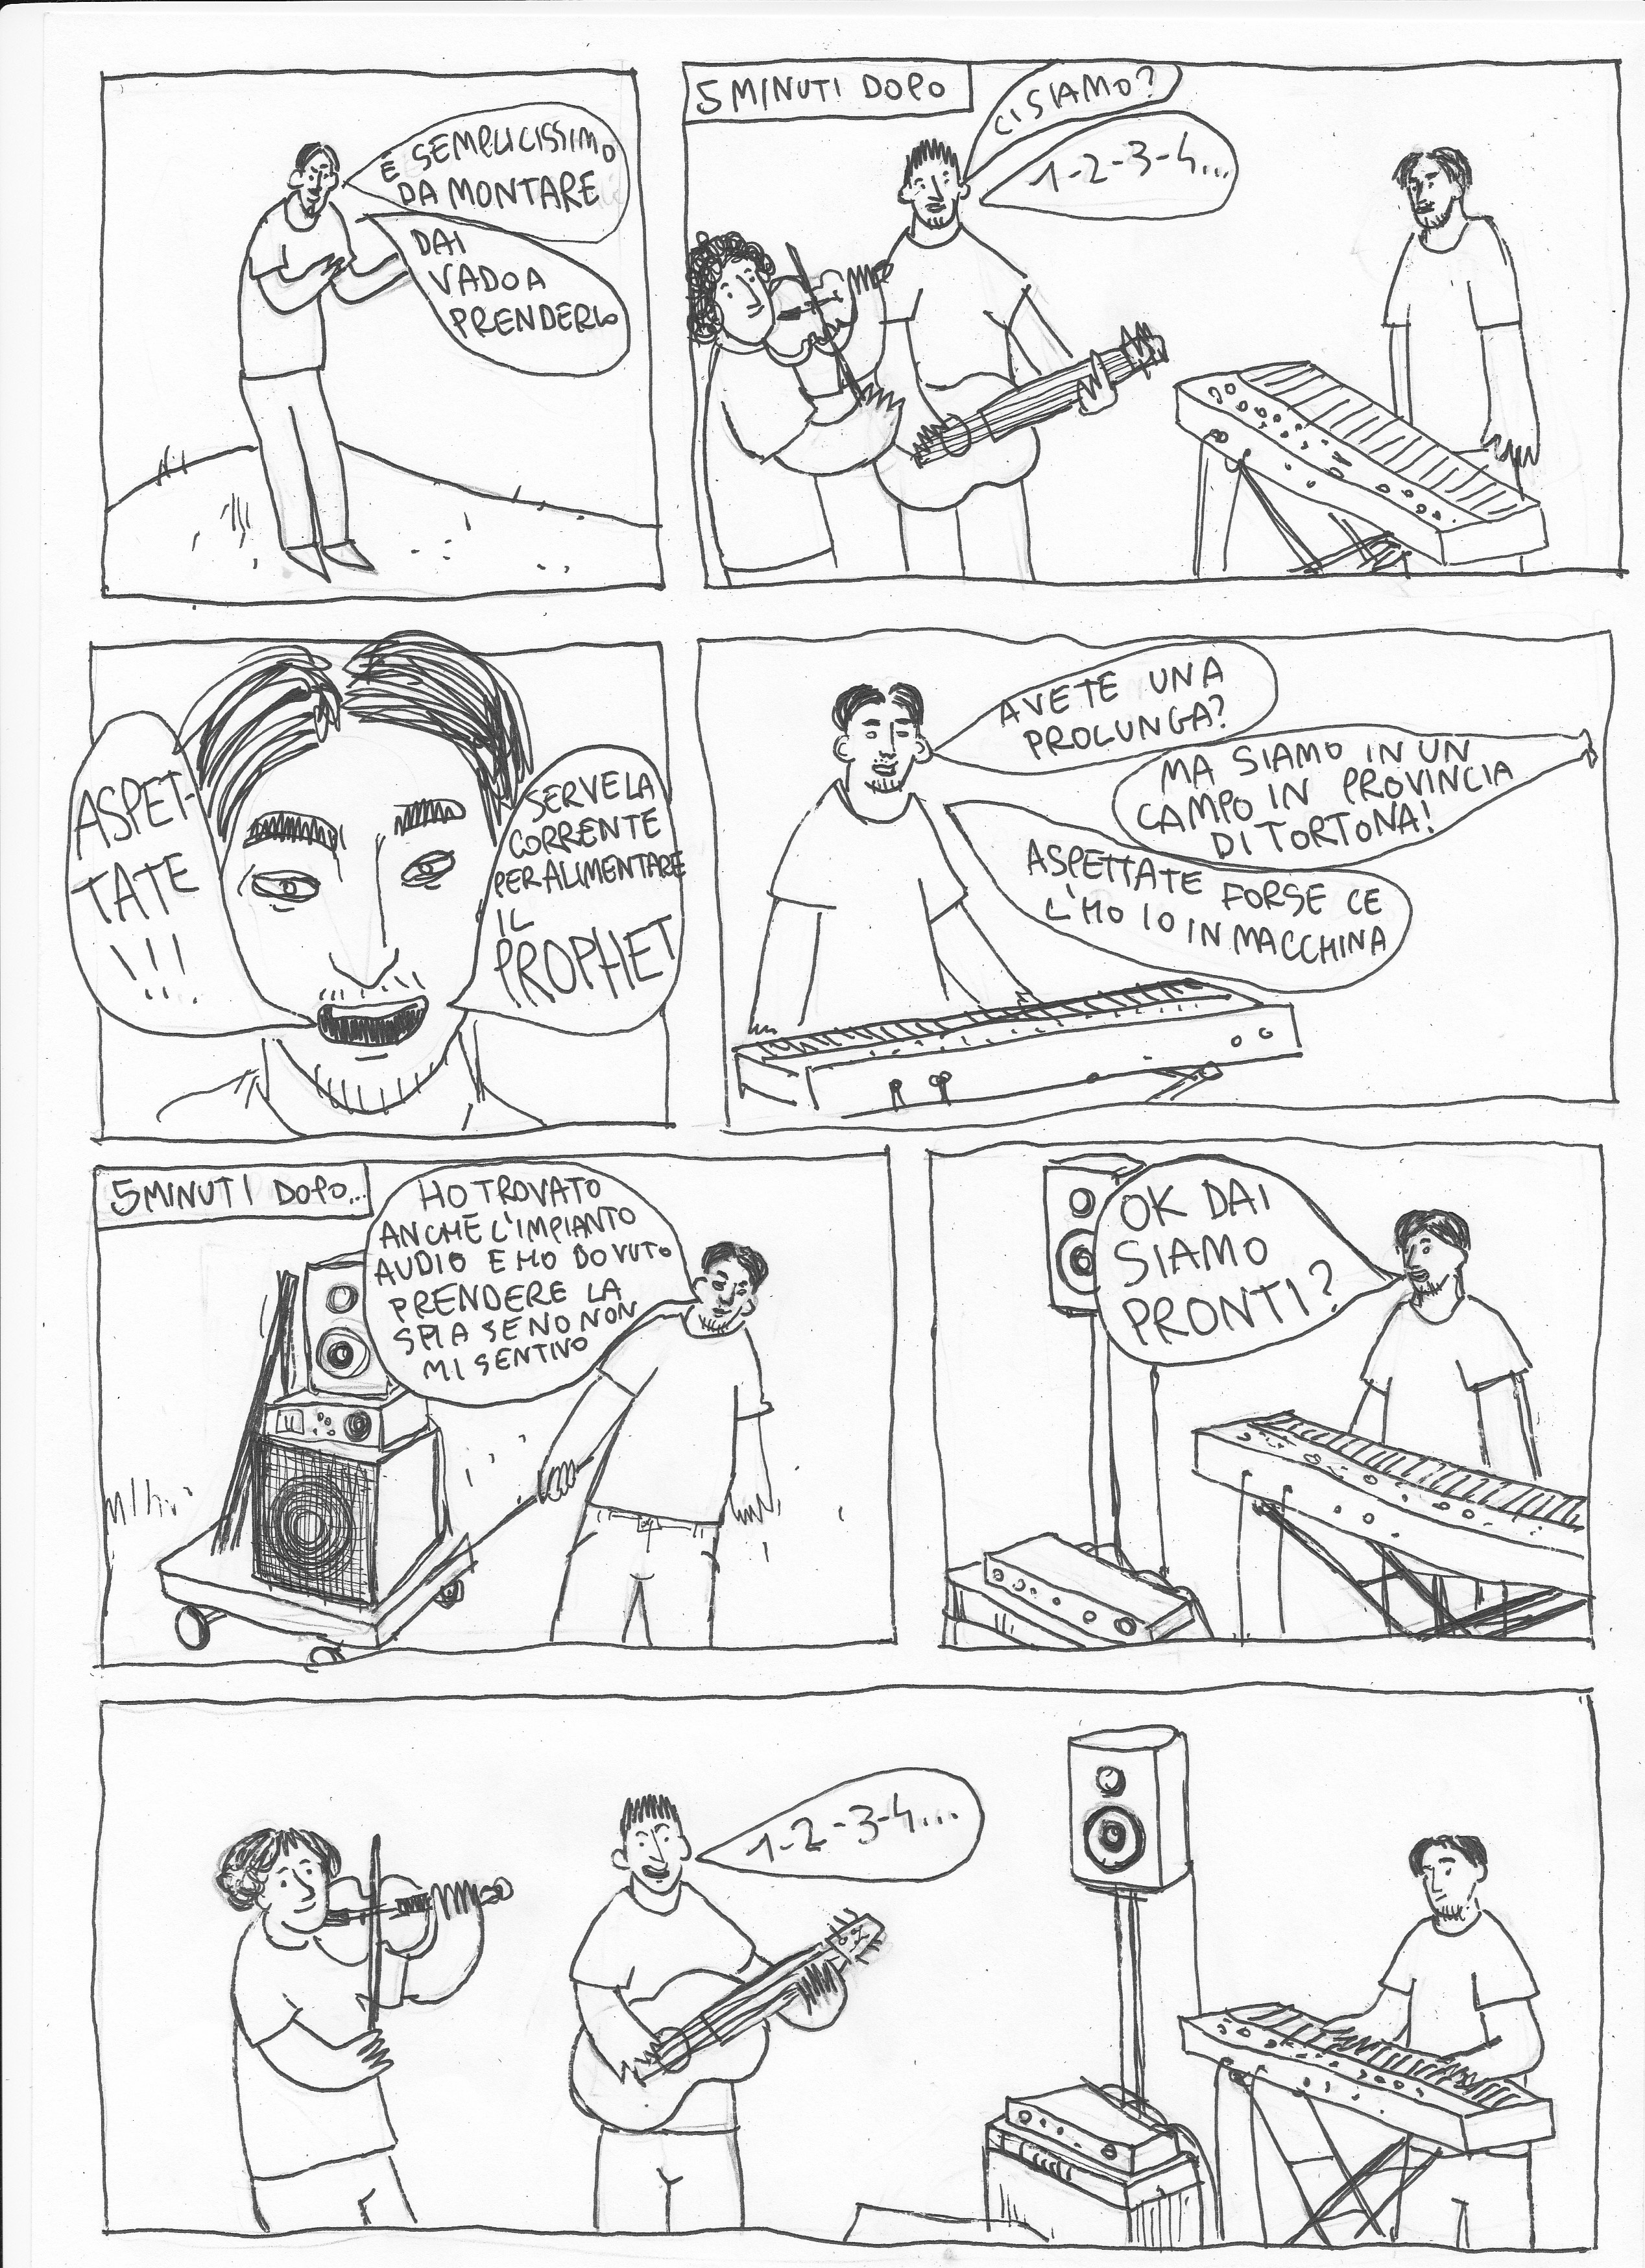 È SEMPLICISSIMO
DA MONTARE
DAI
VADO A
PRENDERLO
5 MINUTI DOPO
CI SIAMO?
1-2-3-4...
ASPET-
TATE
!!!
SERVE LA
CORRENTE
PER ALIMENTARE
IL
PROPHET
AVETE UNA
PROLUNGA?
MA SIAMO IN UN
CAMPO IN PROVINCIA
DI TORTONA!
ASPETTATE FORSE CE
L'HO IO IN MACCHINA
5 MINUTI DOPO...
HO TROVATO
ANCHE L'IMPIANTO
AUDIO E HO DOVUTO
PRENDERE LA
SPIA SENO NON
MI SENTIVO
OK DAI
SIAMO
PRONTI?
1-2-3-4...